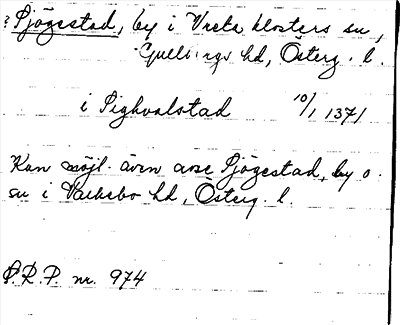 ? Sjögestad, by i Vreta klosters sn,
Gullbergs hd, Österg. l.
i Sighvalstad 10/1 1371
Kan möjl. även avse Sjögestad, by o.
sn i Valkebo hd, Österg. l.
S.R.P. nr. 974